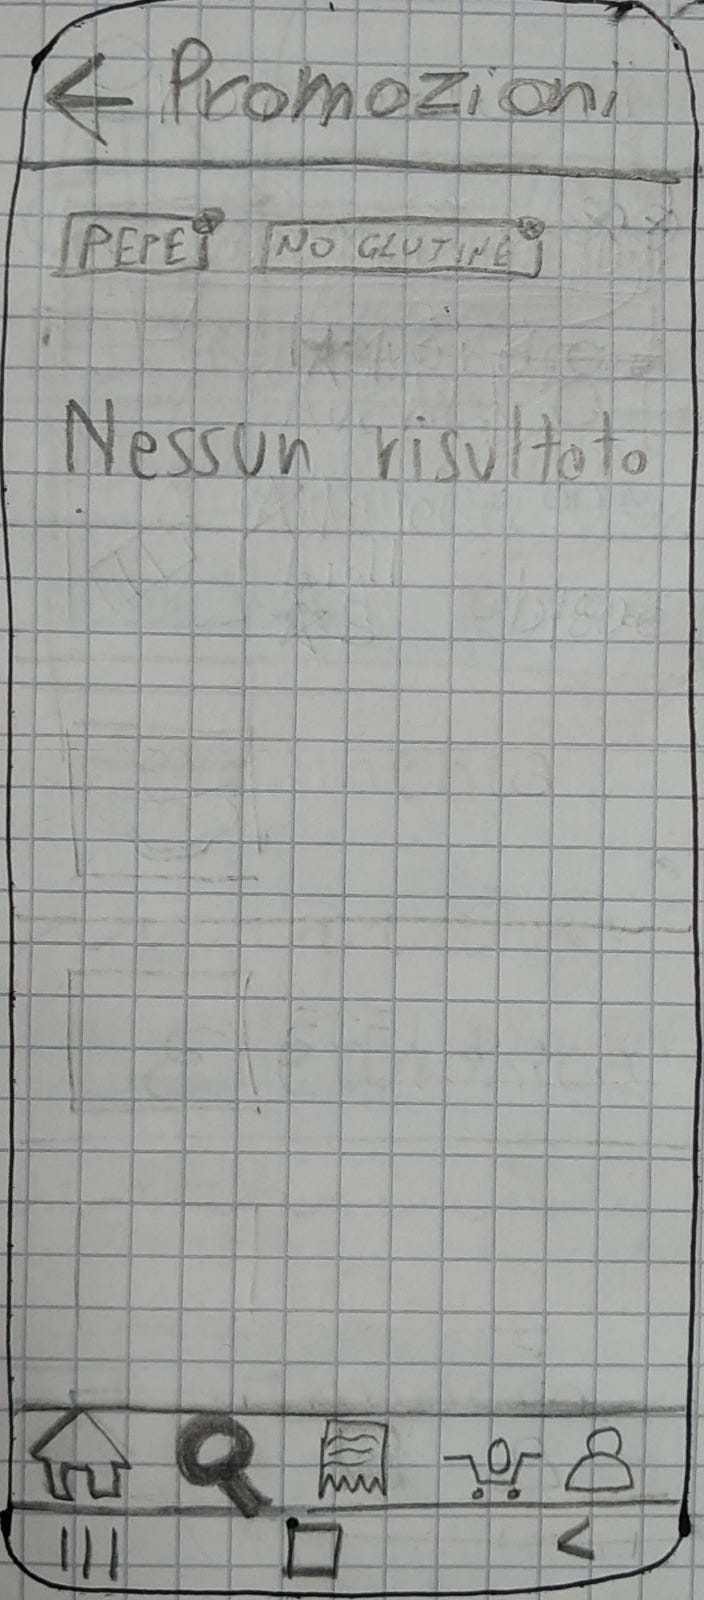 ← Promozioni
PEPE x NO GLUTINE x
Nessun risultato